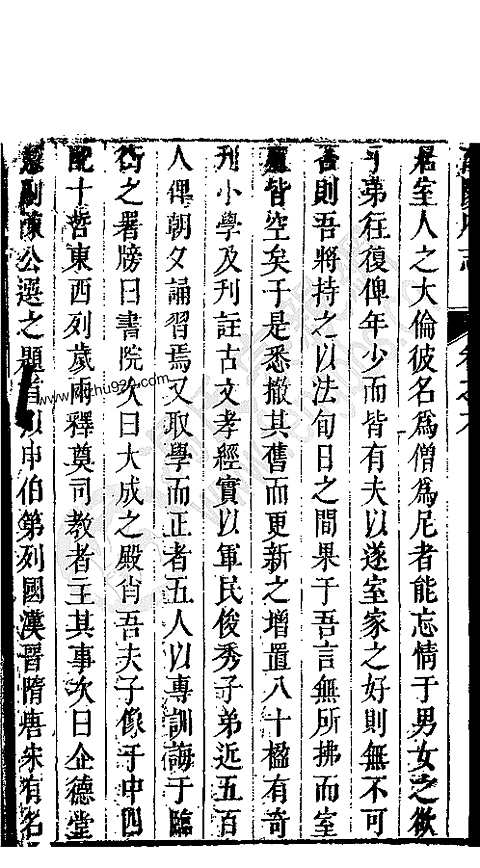 居室人之大倫彼名爲僧爲尼者能忘情于男女之欲
子弟往復俾年少而皆有夫以遂室家之好則無不可
否則吾將持之以法旬日之間果于吾言無所拂而室
廬皆空矣于是悉撤其舊而更新之增置八十楹有奇
刊小學及刊註古文孝經實以軍民俊秀子弟近五百
人俾朝夕誦習焉又取學而正者五人以專訓誨于臨
街之署牓曰書院次曰大成之殿肖吾夫子像于中四
配十哲東西列歲兩釋奠司教者主其事次曰企德堂
副陳公選之題首以申伯第列國漢晉隋唐宋有名
www.zhu920.com